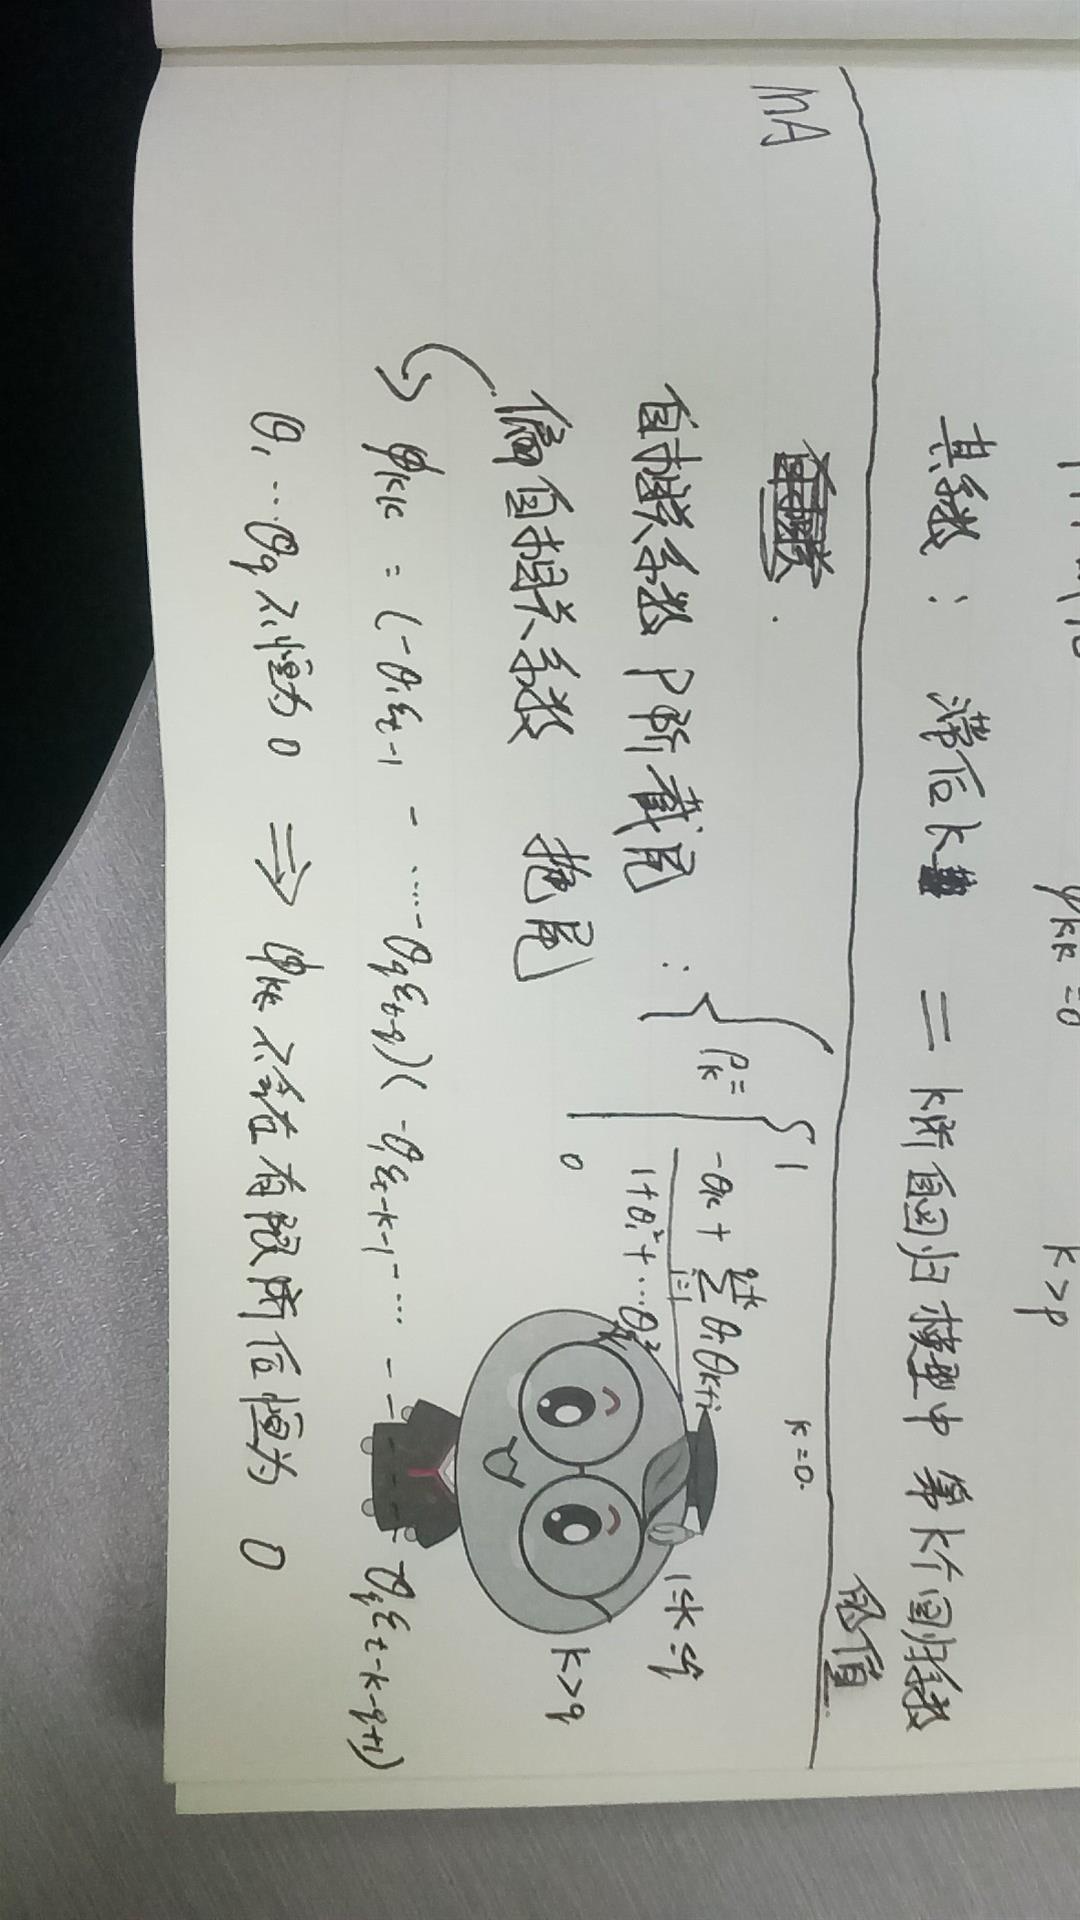 φkk = 0 k>p
其系数: 滞后k = k阶自回归模型中第k个回归系数
的值
MA
自相关系数 P阶截尾: ρk = { 1 k=0.
-θk + Σ θiθk+i
1+θ1²+…θq² 1≤k≤q
0 k>q
偏自相关系数 拖尾
φkk = (-θ1εt-1 - …… - θqεt-q)(-θ1εt-k-1 - … - θqεt-k-q+1)
θ1…θq不恒为0 ⇒ φkk不会在有限阶后恒为0